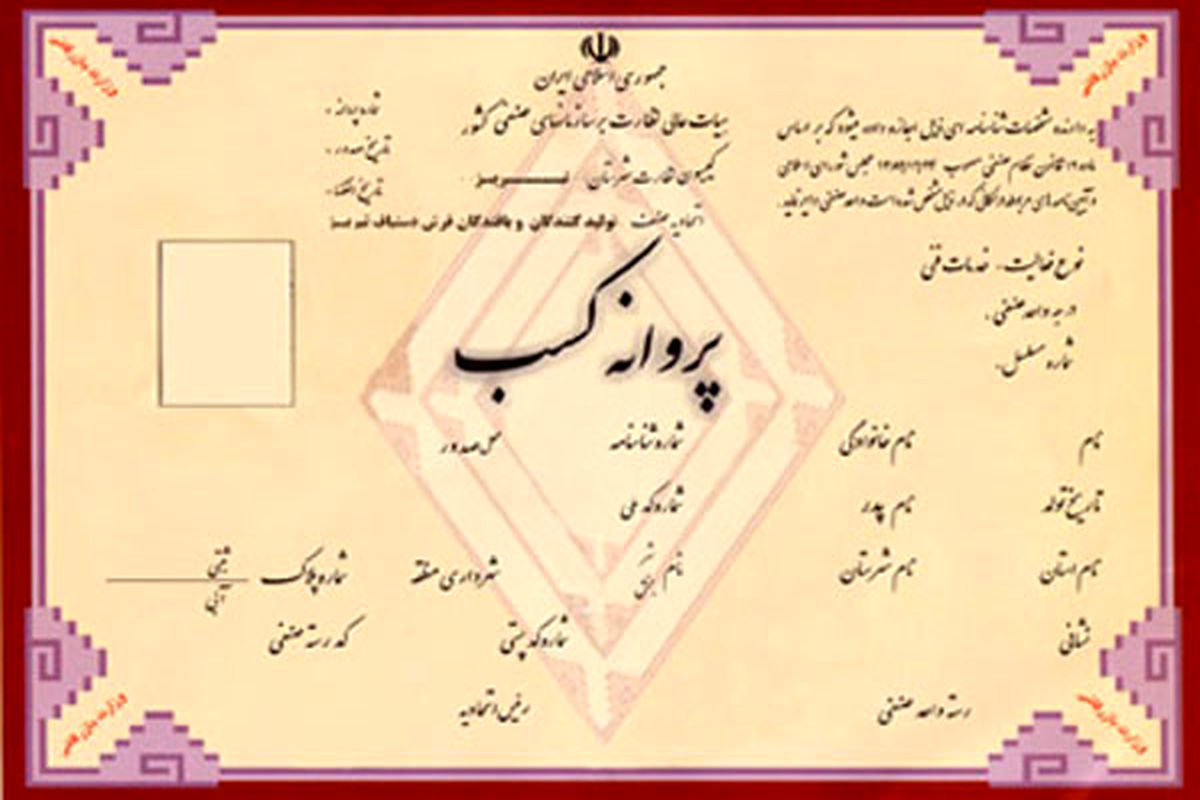 جمهوری اسلامی ایران
هیات عالی نظارت بر سازمانهای صنفی کشور
کمیسیون نظارت شهرستان تبریز
اتحادیه صنف تولید کنندگان و بافندگان فرش دستباف تبریز
شماره پروانه .
تاریخ صدور .
تاریخ انقضاء .
به دارنده مشخصات شناسنامه ای ذیل اجازه داده میشود که بر اساس
ماده ۱۲ قانون نظام صنفی مصوب ۱۳۸۲/۱۲/۲۴ مجلس شورای اسلامی
و آیین نامه های مربوطه در مکانی که در ذیل مشخص شده است واحد صنفی دایر نماید .
نوع فعالیت . خدمات فنی
درجه واحد صنفی .
شماره مسلسل .
پروانه کسب
نام
نام خانوادگی
شماره شناسنامه
محل صدور
تاریخ تولد
نام پدر
شماره کد ملی
نام استان
نام شهرستان
نام شهر بخش
شهرداری منطقه
شماره پلاک ثبتی آبی
نشانی
شماره کد پستی
کد رسته صنفی
رسته واحد صنفی
رئیس اتحادیه
وزارت بازرگانی
وزارت بازرگانی
وزارت بازرگانی
وزارت بازرگانی